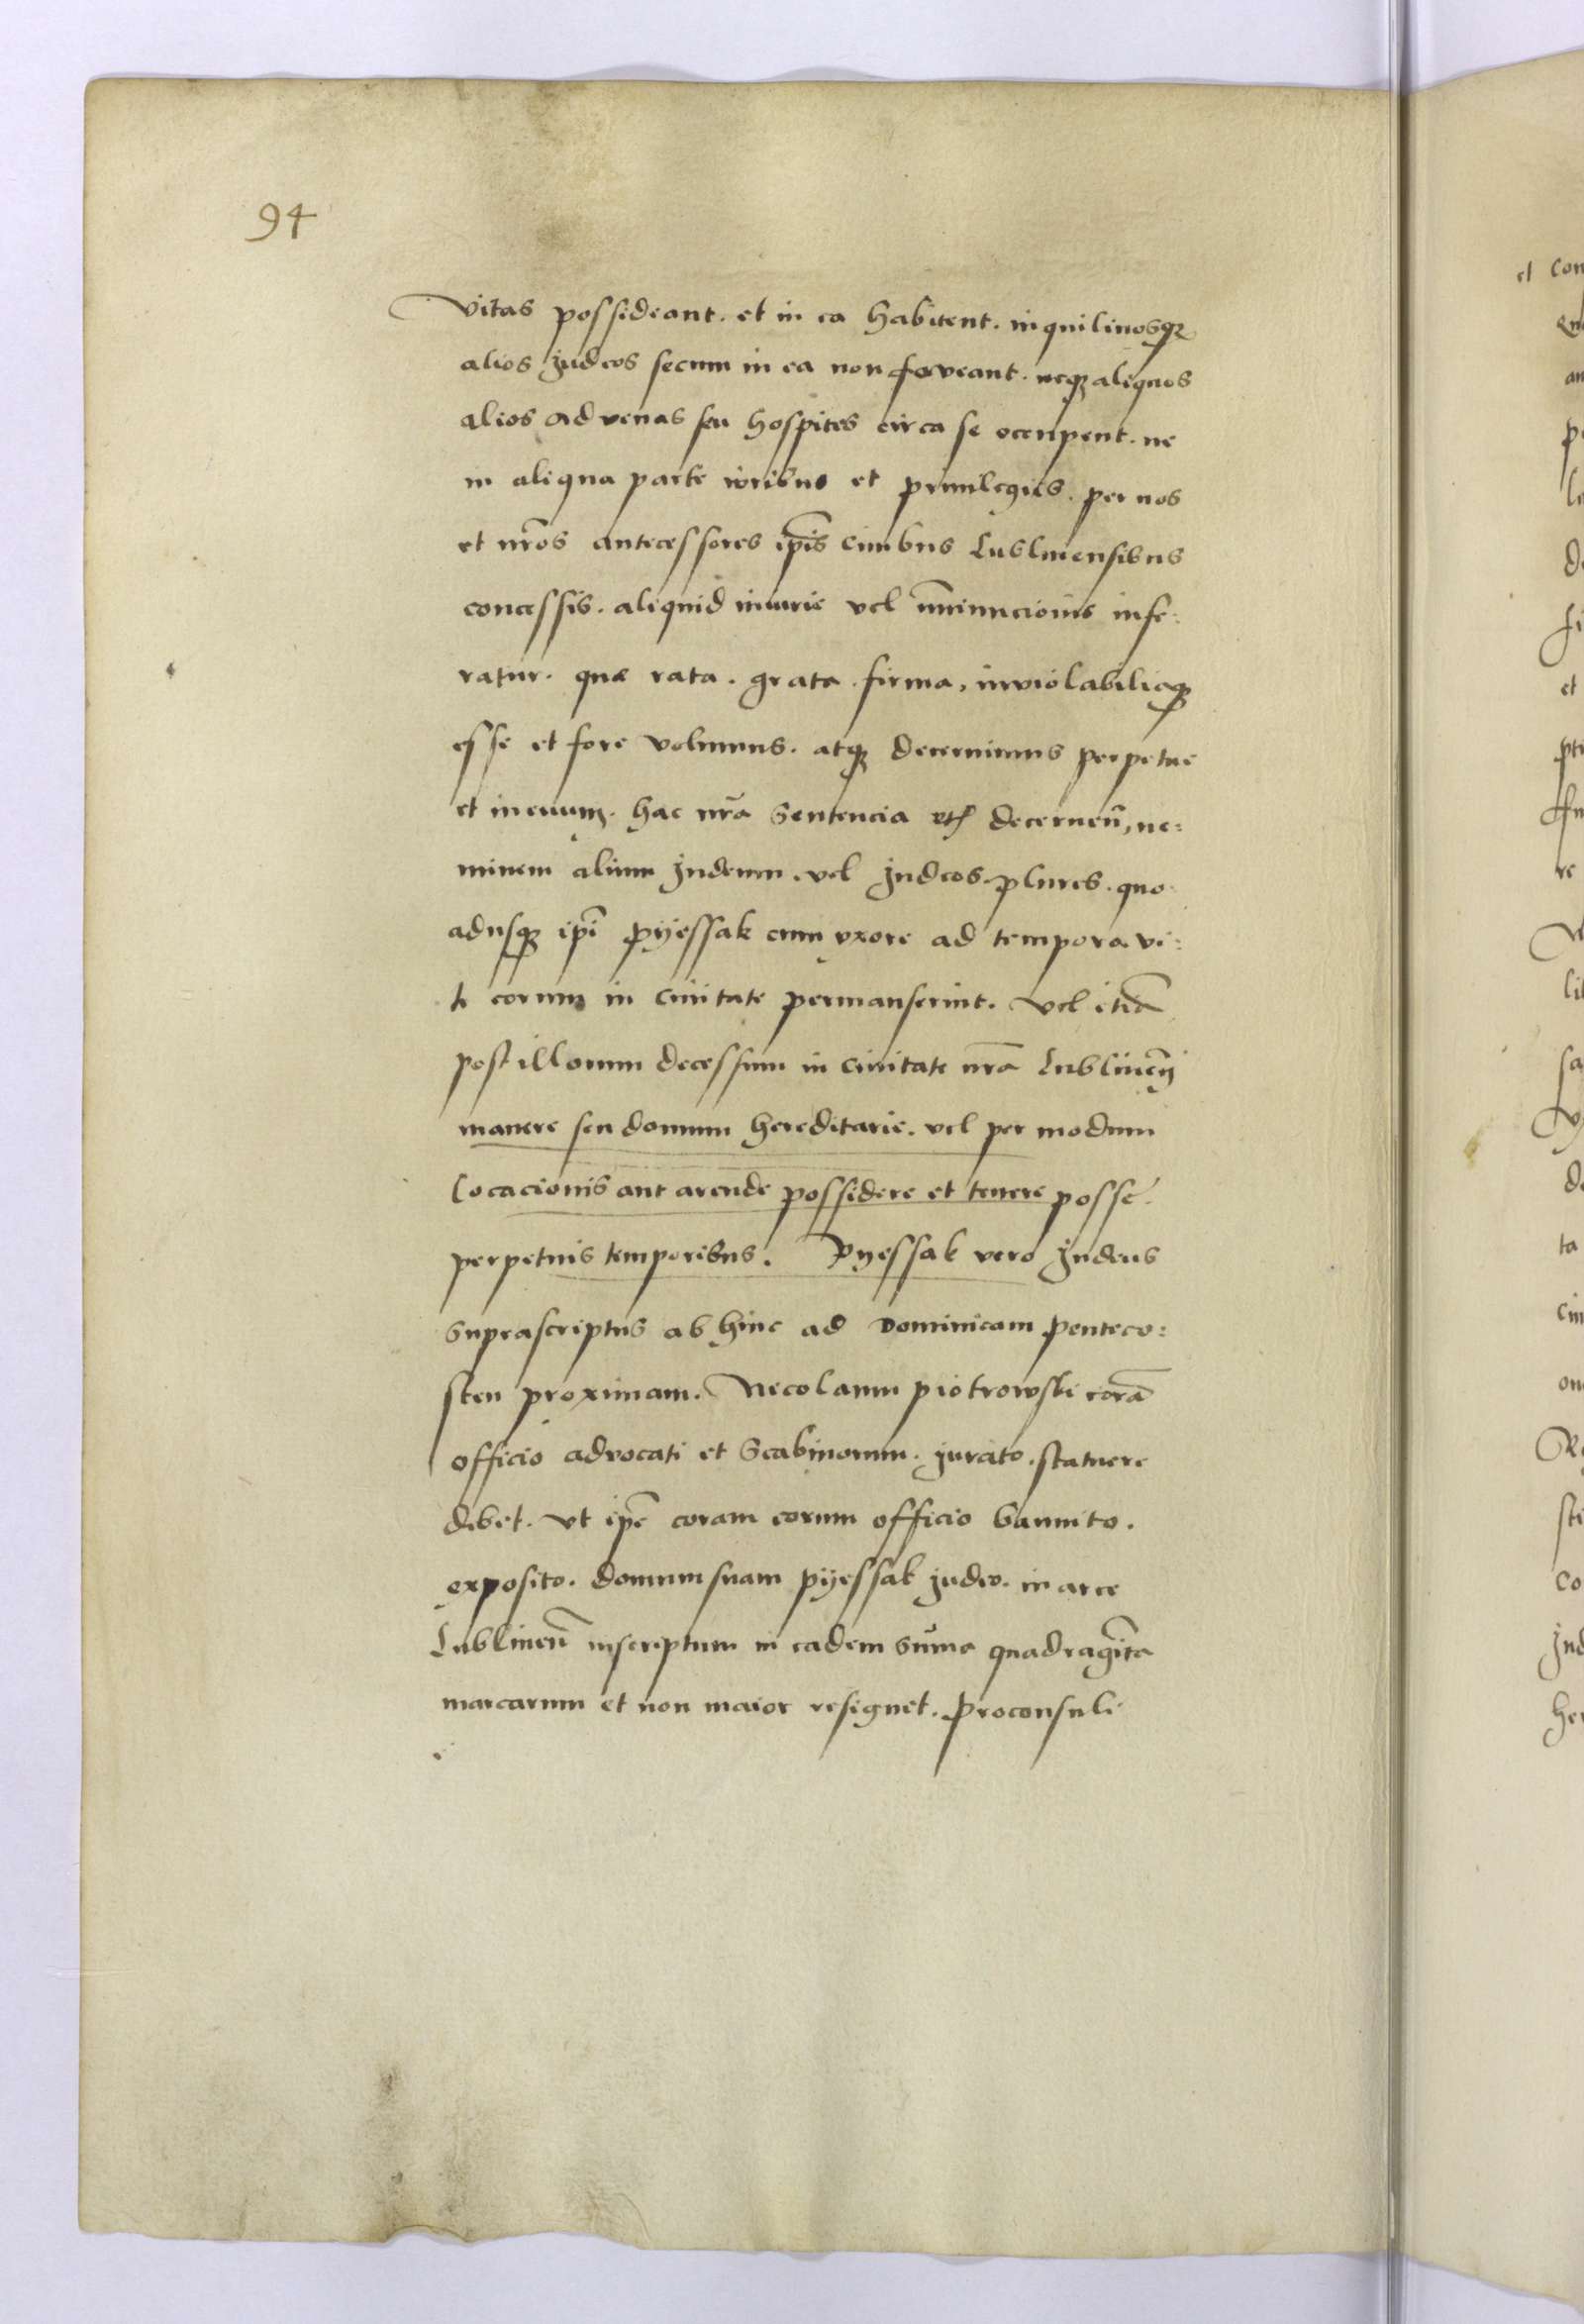 94
vitas possideant. et in ea habitent. inquilinosqꝫ
alios Judeos secum in ea non foveant. neqꝫ aliquos
alios advenas seu hospites circa se occupent. ne
in aliqua parte iuribus et privilegiis. per nos
et nr̃os antecessores ip̃is civibus Lublinensibus
concessis. aliquid iniurie vel inminucionis infe:
ratur. que rata. grata. firma, inviolabiliaqꝫ
esse et fore volumus. atqꝫ decernimus perpetue
et in evum. hac nr̃a Sentencia decerneñ, ne:
minem alium Judeum. vel Judeos plures. quo
adusqꝫ ip̃i Pyessak cum uxore ad tempora vi:
te eorum in civitate permanserint. Vel etiã
post illorum decessum in civitate nr̃a Lublineñ
manere seu domum hereditarie. vel per modum
Locacionis aut arende possidere et tenere posse.
perpetuis temporibus. Pyessak vero Judeus
suprascriptus ab hinc ad Dominicam Penteco:
sten proximam. Nicolaum Piotrowski corã
officio advocati et Scabinorum. jurato. statuere
debet. ut ip̃e coram eorum officio bannito.
exposito. domum suam pyessak judeo. in arce
Lublineñ inscriptum in eadem sũma quadragĩta
marcarum et non maior resignet. proconsuli